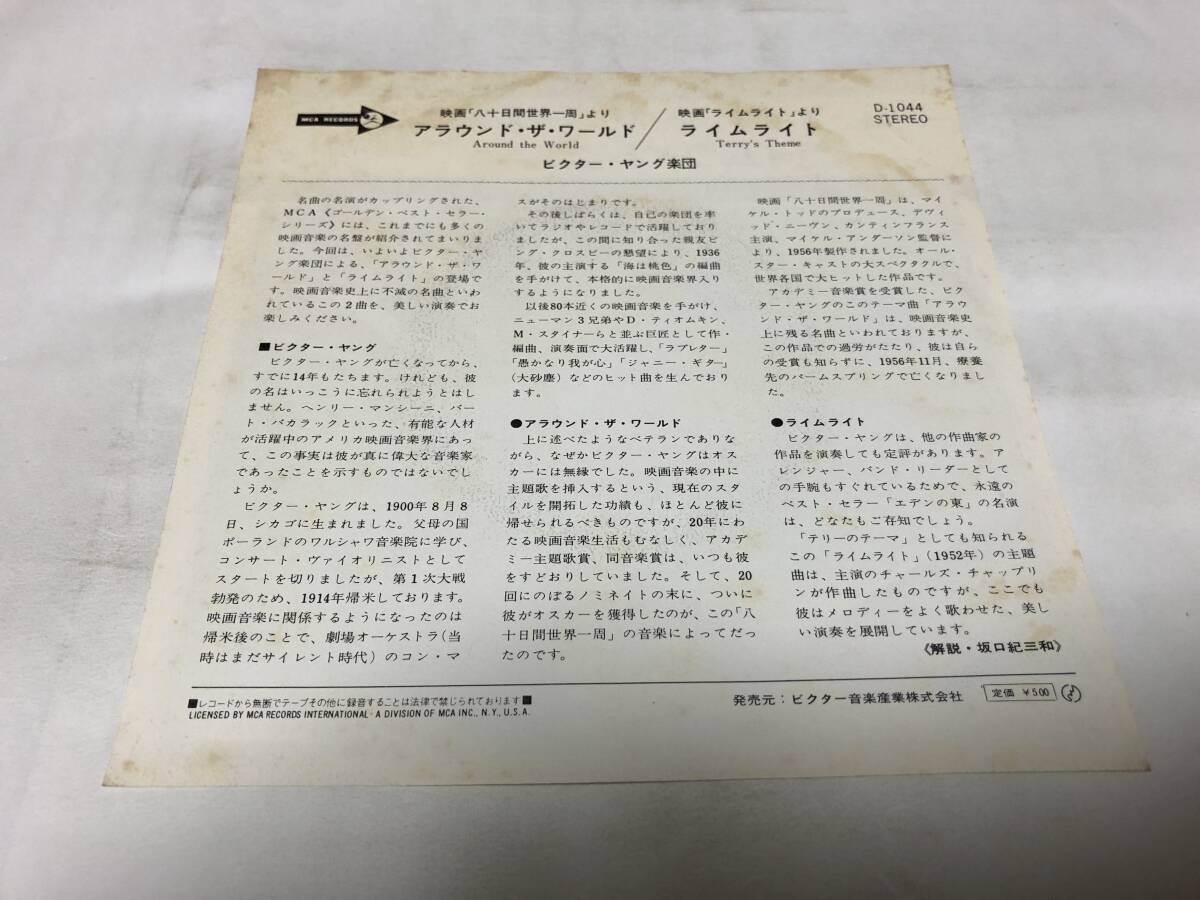 MCA RECORDS
映画「八十日間世界一周」より
アラウンド・ザ・ワールド
Around the World
映画「ライムライト」より
ライムライト
Terry's Theme
D-1044
STEREO
ビクター・ヤング楽団
名曲の名演がカップリングされた、
MCA《ゴールデン・ベスト・セラー・
シリーズ》には、これまでにも多くの
映画音楽の名盤が紹介されてまいりま
した。今回は、いよいよビクター・ヤ
ング楽団による、「アラウンド・ザ・ワ
ールド」と「ライムライト」の登場で
す。映画音楽史上に不滅の名曲といわ
れているこの2曲を、美しい演奏でお
楽しみください。
■ビクター・ヤング
ビクター・ヤングが亡くなってから、
すでに14年もたちます。けれども、彼
の名はいっこうに忘れられようとはし
ません。ヘンリー・マンシーニ、バー
ト・バカラックといった、有能な人材
が活躍中のアメリカ映画音楽界にあっ
て、この事実は彼が真に偉大な音楽家
であったことを示すものではないでし
ょうか。
ビクター・ヤングは、1900年8月8
日、シカゴに生まれました。父母の国
ポーランドのワルシャワ音楽院に学び、
コンサート・ヴァイオリニストとして
スタートを切りましたが、第1次大戦
勃発のため、1914年帰米しております。
映画音楽に関係するようになったのは
帰米後のことで、劇場オーケストラ(当
時はまだサイレント時代)のコン・マ
スがそのはじまりです。
その後しばらくは、自己の楽団を率
いてラジオやレコードで活躍しており
ましたが、この間に知り合った親友ビ
ング・クロスビーの懇望により、1936
年、彼の主演する「海は桃色」の編曲
を手がけて、本格的に映画音楽界入り
するようになりました。
以後80本近くの映画音楽を手がけ、
ニューマン3兄弟やD・ティオムキン、
M・スタイナーらと並ぶ巨匠として作・
編曲、演奏面で大活躍し、「ラブレター」
「愚かなり我が心」「ジャニー・ギター」
(大砂塵)などのヒット曲を生んでおり
ます。
●アラウンド・ザ・ワールド
上に述べたようなベテランでありな
がら、なぜかビクター・ヤングはオス
カーには無縁でした。映画音楽の中に
主題歌を挿入するという、現在のスタ
イルを開拓した功績も、ほとんど彼に
帰せられるべきものですが、20年にわ
たる映画音楽生活もむなしく、アカデ
ミー主題歌賞、同音楽賞は、いつも彼
をすどおりしていました。そして、20
回にのぼるノミネイトの末に、ついに
彼がオスカーを獲得したのが、この「八
十日間世界一周」の音楽によってだっ
たのです。
映画「八十日間世界一周」は、マイ
ケル・トッドのプロデュース、デヴィ
ッド・ニーヴン、カンティンフランス
主演、マイケル・アンダーソン監督によ
り、1956年製作されました。オール・
スター・キャストの大スペクタクルで、
世界各国で大ヒットした作品です。
アカデミー音楽賞を受賞した、ビク
ター・ヤングのこのテーマ曲「アラウ
ンド・ザ・ワールド」は、映画音楽史
上に残る名曲といわれておりますが、
この作品での過労がたたり、彼は自ら
の受賞も知らずに、1956年11月、療養
先のパームスプリングで亡くなりまし
た。
●ライムライト
ビクター・ヤングは、他の作曲家の
作品を演奏しても定評があります。ア
レンジャー、バンド・リーダーとして
の手腕もすぐれているためで、永遠の
ベスト・セラー「エデンの東」の名演
は、どなたもご存知でしょう。
「テリーのテーマ」としても知られる
この「ライムライト」(1952年)の主題
曲は、主演のチャールズ・チャップリ
ンが作曲したものですが、ここでも
彼はメロディーをよく歌わせた、美し
い演奏を展開しています。
《解説・坂口紀三和》
■レコードから無断でテープその他に録音することは法律で禁じられております■
LICENSED BY MCA RECORDS INTERNATIONAL・A DIVISION OF MCA INC., N.Y., U.S.A.
発売元：ビクター音楽産業株式会社
定価 ¥500